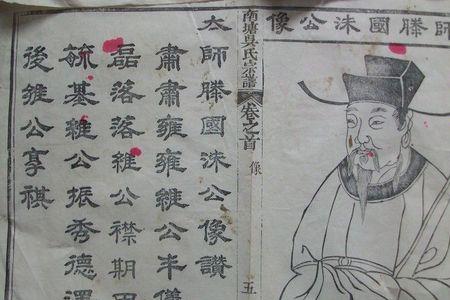 師滕國洙公像
南塘吳氏宗譜
卷之首
像
五
太師滕國洙公像讚
肅肅雍雍維公丰儀
磊落落維公襟期
毓基維公振秀德澤
後維公享祺